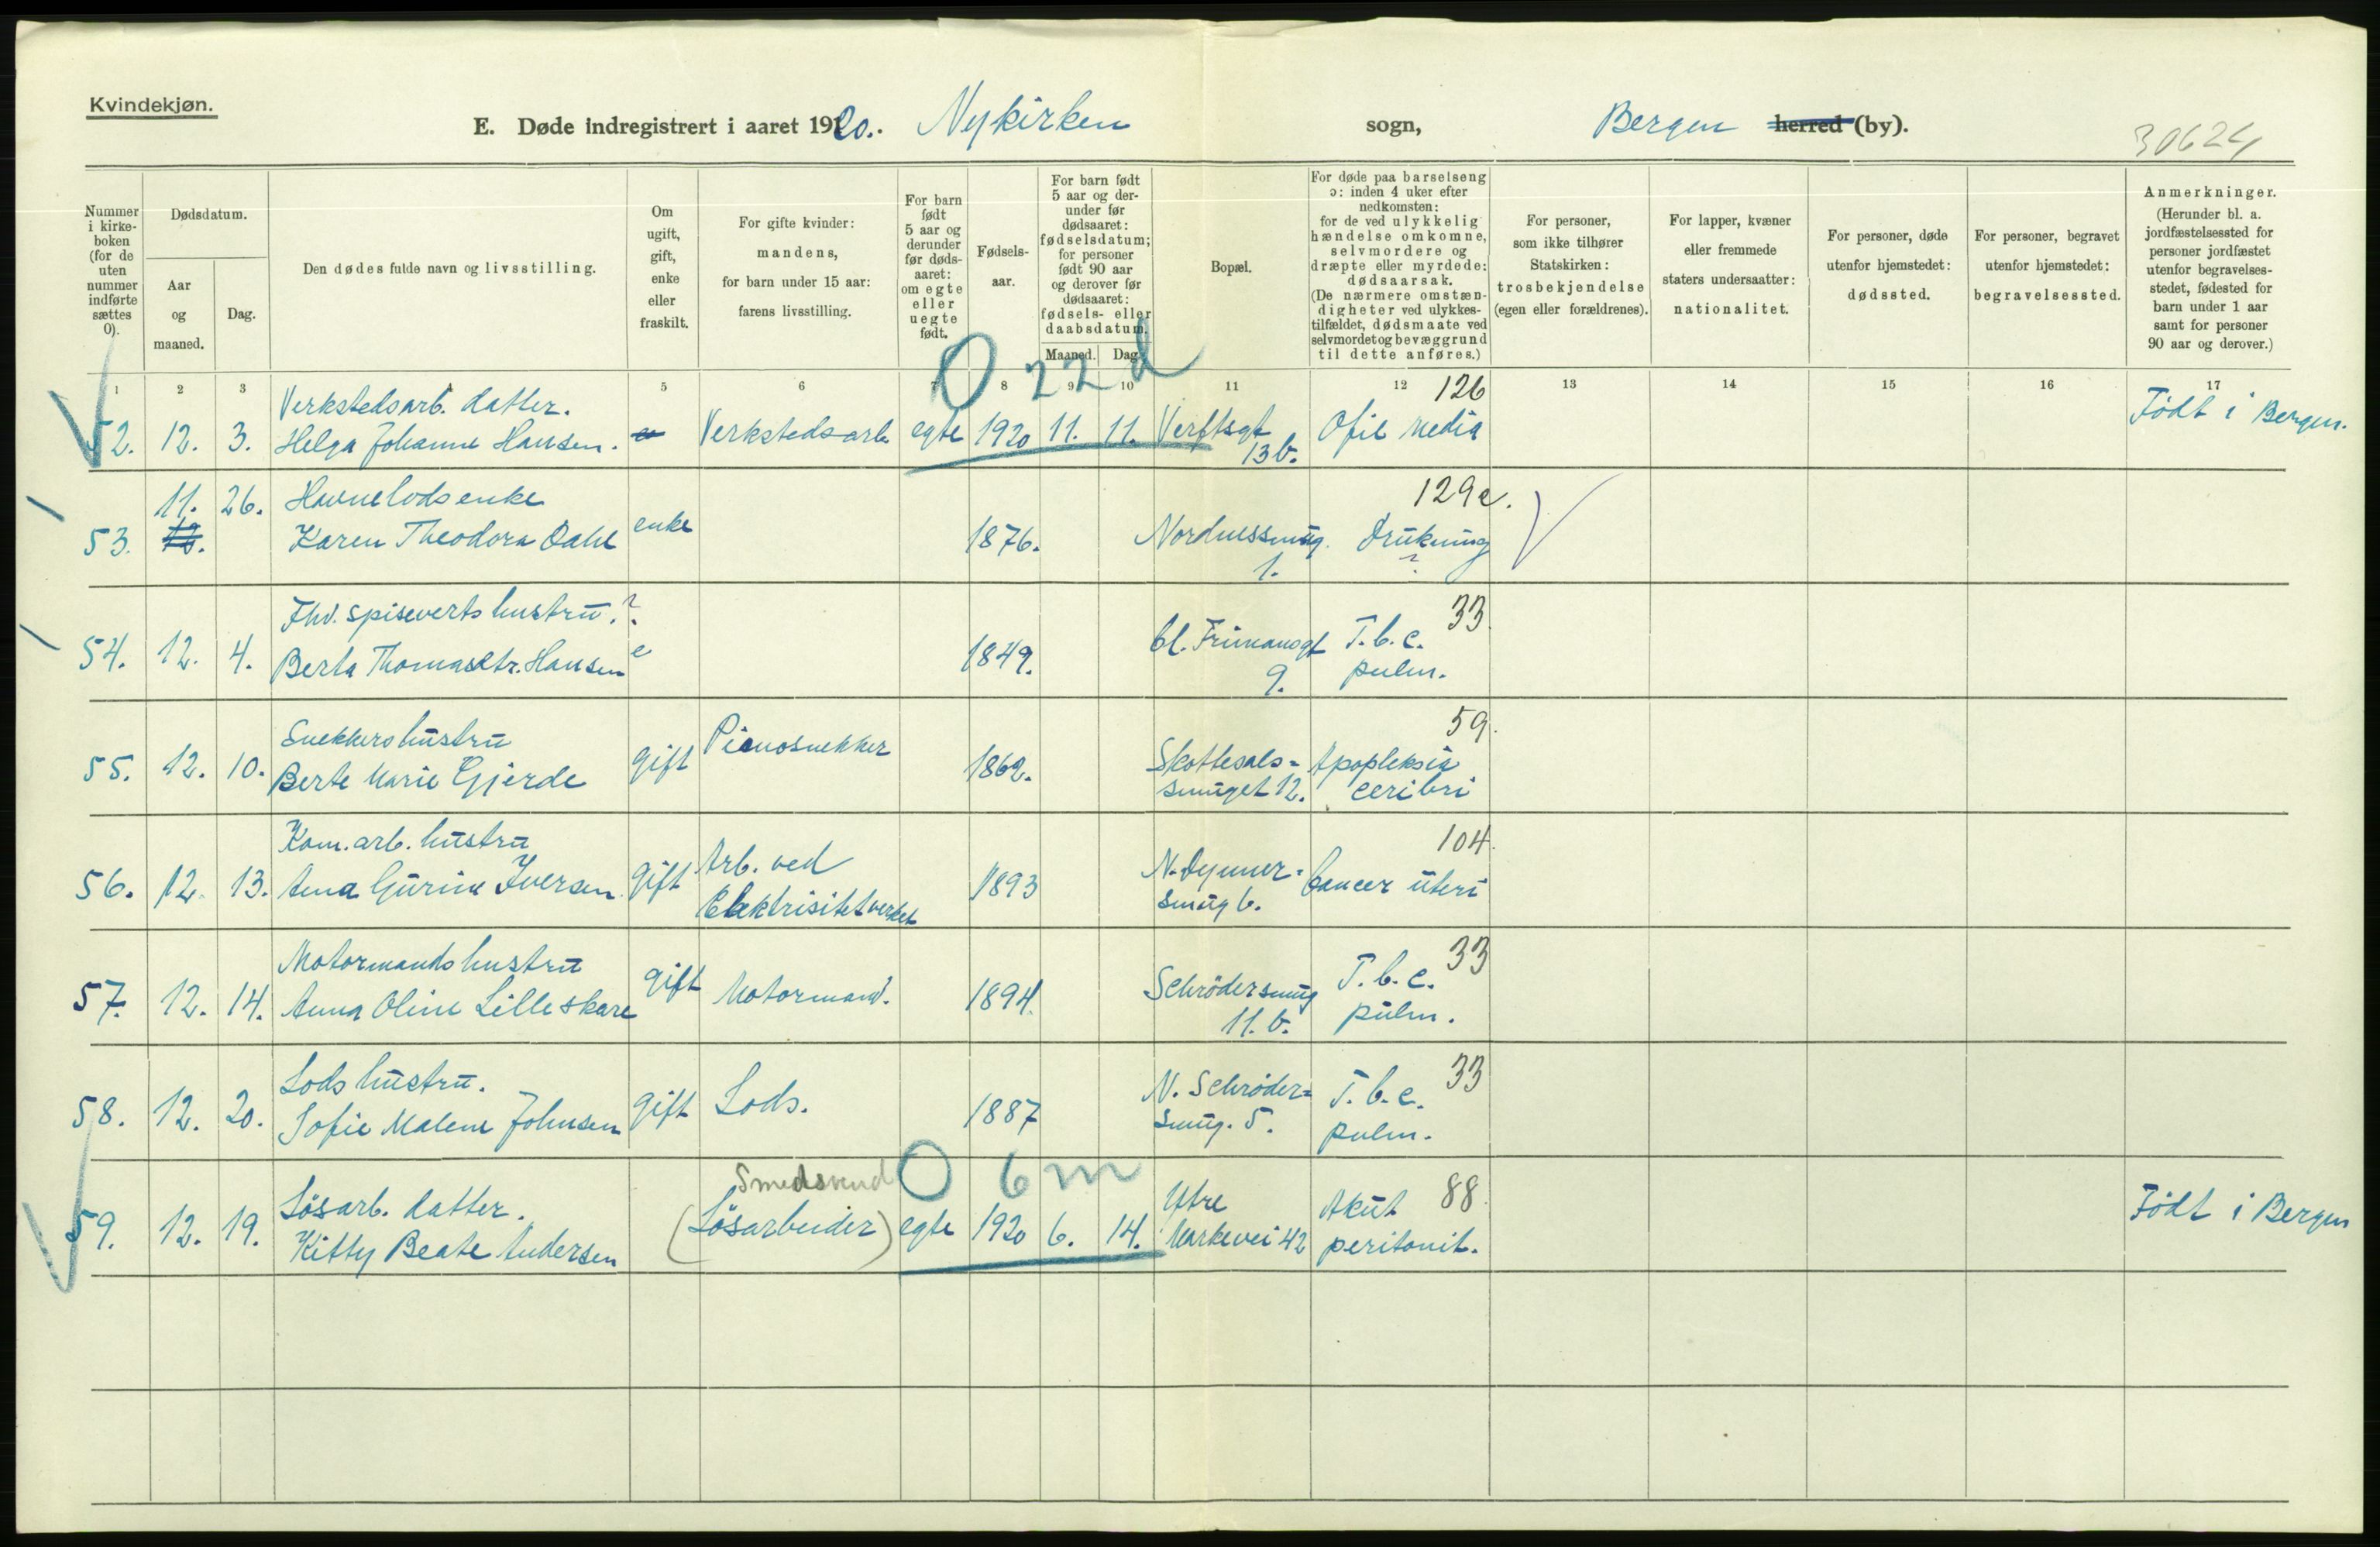 Kvindekjøn.
E. Døde indregistrert i aaret 1920. Nykirken sogn, Bergen herred (by).
30624
Nummer i kirke-boken (for de uten nummer indførte sættes 0).
Dødsdatum.
Aar og maaned.
Dag.
Den dødes fulde navn og livsstilling.
Om ugift, gift, enke eller fraskilt.
For gifte kvinder: mandens, for barn under 15 aar: farens livsstilling.
For barn født 5 aar og derunder før døds-aaret: om egte eller uegte født.
Fødsels-aar.
For barn født 5 aar og der-under før dødsaaret: fødselsdatum; for personer født 90 aar og derover før dødsaaret: fødsels- eller daabsdatum.
Maaned.
Dag.
Bopæl.
For døde paa barselseng ɔ: inden 4 uker efter nedkomsten: for de ved ulykkelig hændelse omkomne, selvmordere og dræpte eller myrdede: dødsaarsak. (De nærmere omstæn-digheter ved ulykkes-tilfældet, dødsmaate ved selvmordet og bevæggrund til dette anføres.)
For personer, som ikke tilhører Statskirken: trosbekjendelse (egen eller forældrenes).
For lapper, kvæner eller fremmede staters undersaatter: nationalitet.
For personer, døde utenfor hjemstedet: dødssted.
For personer, begravet utenfor hjemstedet: begravelsessted.
Anmerkninger. (Herunder bl. a. jordfæstelsessted for personer jordfæstet utenfor begravelses-stedet, fødested for barn under 1 aar samt for personer 90 aar og derover.)
1 2 3 4 5 6 7 8 9 10 11 12 13 14 15 16 17
0 22 d
126
Verkstedsarb. datter.
52. 12. 3. Helga Johanne Hansen. e Verkstedsarb. egte 1920 11. 11. Verftsgt 13b. Ofit media Født i Bergen.
129e.
11. 26. Havnelods enke
53. 12. Karen Theodora Dahl enke 1876. Nordnessmug. 1. Drukning ?
33.
Fhv. spiseverts hustru. ?
54. 12. 4. Berta Thomasdtr. Hansen e 1849. Cl. Frimansgt 9. T.b.c. pulm.
59.
Snekkers hustru
55. 12. 10. Berte Marie Gjerde gift Pianosnekker 1862. Skottesals-smuget 12. Apopleksia ceribri
104.
Kom. arb. hustru
56. 12. 13. Anna Gurine Iversen gift Arb. ved Elektrisitetverket 1893 N. Dynner-smug 6. Cancer uteri
33
Motormands hustru
57. 12. 14. Anna Oline Lilleskare gift Motormand. 1894. Schrödersmug 11.b. T.b.c. pulm.
33
Lods hustru.
58. 12. 20. Sofie Malene Johnsen gift Lods. 1887 N. Schröder-smug. 5. T.b.c. pulm.
Smedsvend 0 6 m
88.
Løsarb. datter.
59. 12. 19. Kitty Beate Andersen (Løsarbeider) egte 1920 6. 14. Ytre Markevei 42 Akut peritonit. Født i Bergen